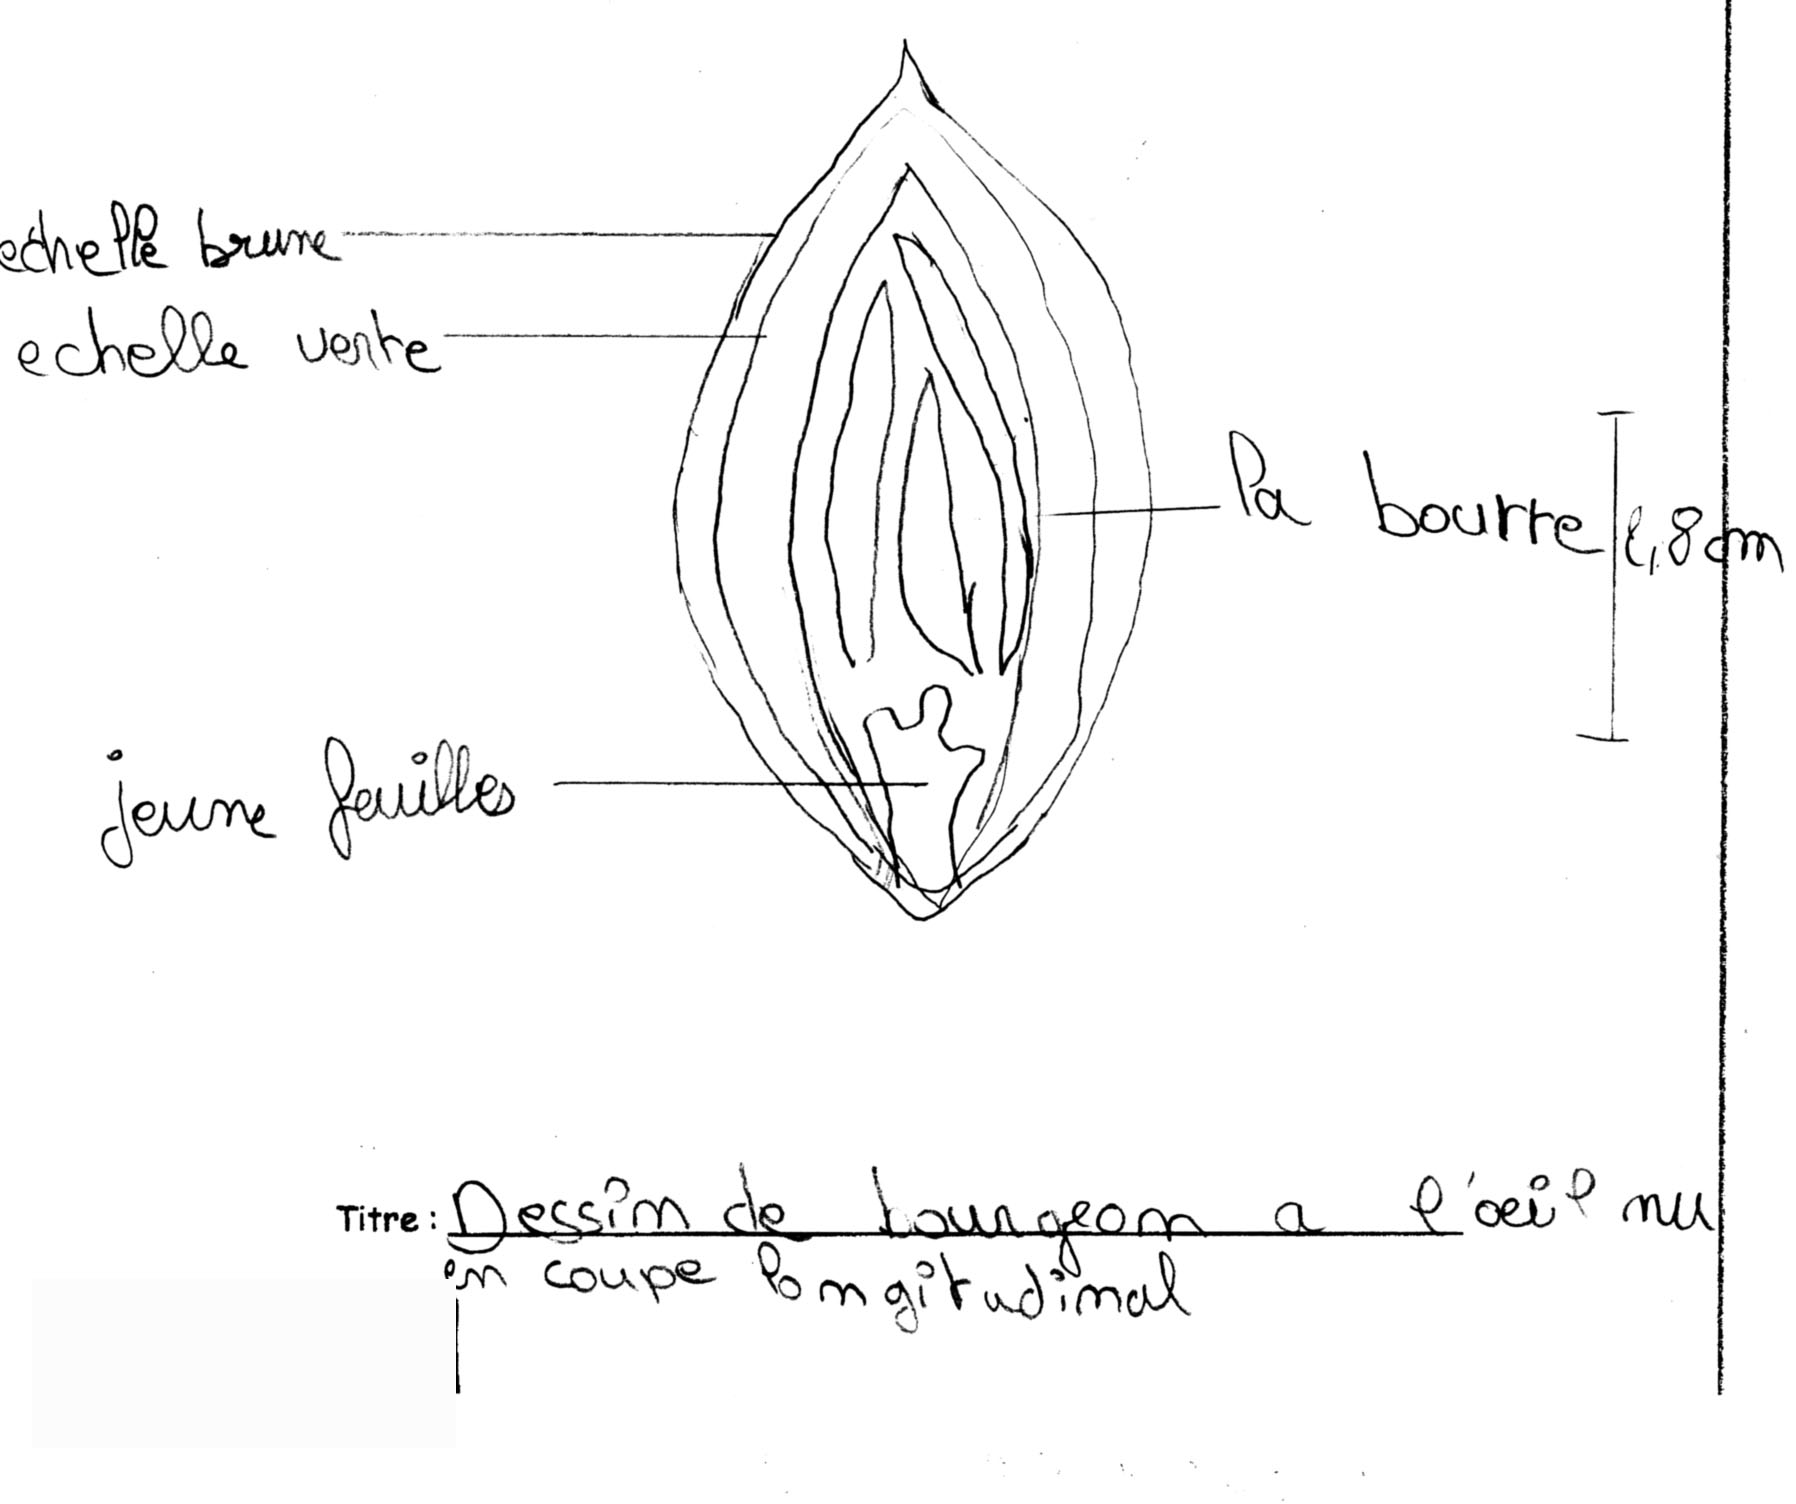 echelle brune
echelle verte
la bourre
1,8 cm
jeune feuilles
Titre : Dessin de bourgeon a l'oeil nu
en coupe longitudinal